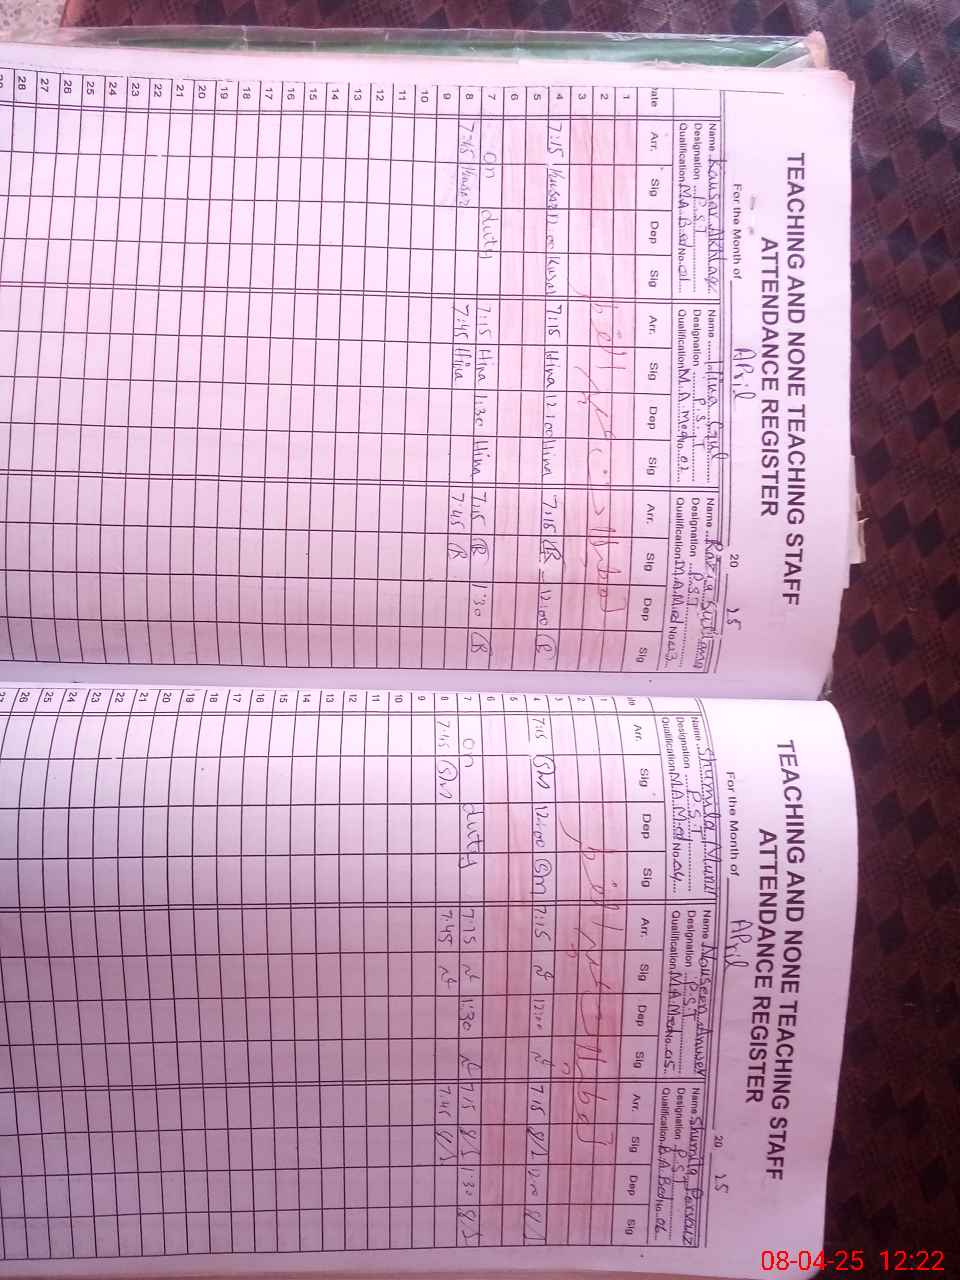 TEACHING AND NONE TEACHING STAFF
ATTENDANCE REGISTER
For the Month of April 20 25
Name Kausar Name Hina Gul Name Razia Sultana
Designation P.S.T Designation P.S.T Designation P.S.T
Qualification M.A. B.ed No. 01 Qualification M.A. Med No. 02 Qualification M.A. M.ed No. 03
Arr. Sig Dep Sig Arr. Sig Dep Sig Arr. Sig Dep Sig
1
2
3
4 7:15 Kausar 12:00 Kausar 7:15 Hina 12:00 Hina 7:15 R 12:00 R
5
6
7 on duty 7:15 Hina 1:30 Hina 7:15 R 1:30 R
8 7:45 Kausar 7:45 Hina 7:45 R
9
10
11
12
13
14
15
16
17
18
19
20
21
22
23
24
25
26
27
28
TEACHING AND NONE TEACHING STAFF
ATTENDANCE REGISTER
For the Month of April 20 25
Name Shumila Munir Name Nouseen Anwer Name Shumila Parvaiz
Designation P.S.T Designation P.S.T Designation P.S.T
Qualification M.A. M.ed No. 04 Qualification M.A. Med No. 05 Qualification B.A. Bed No. 06
Arr. Sig Dep Sig Arr. Sig Dep Sig Arr. Sig Dep Sig
1
2
3
4 7:15 SM 12:00 SM 7:15 12:00 7:15 12:00
5
6
7 on duty 7:15 1:30 7:15 1:30
8 7:45 SM 7:45 7:45
9
10
11
12
13
14
15
16
17
18
19
20
21
22
23
24
25
26
08-04-25 12:22